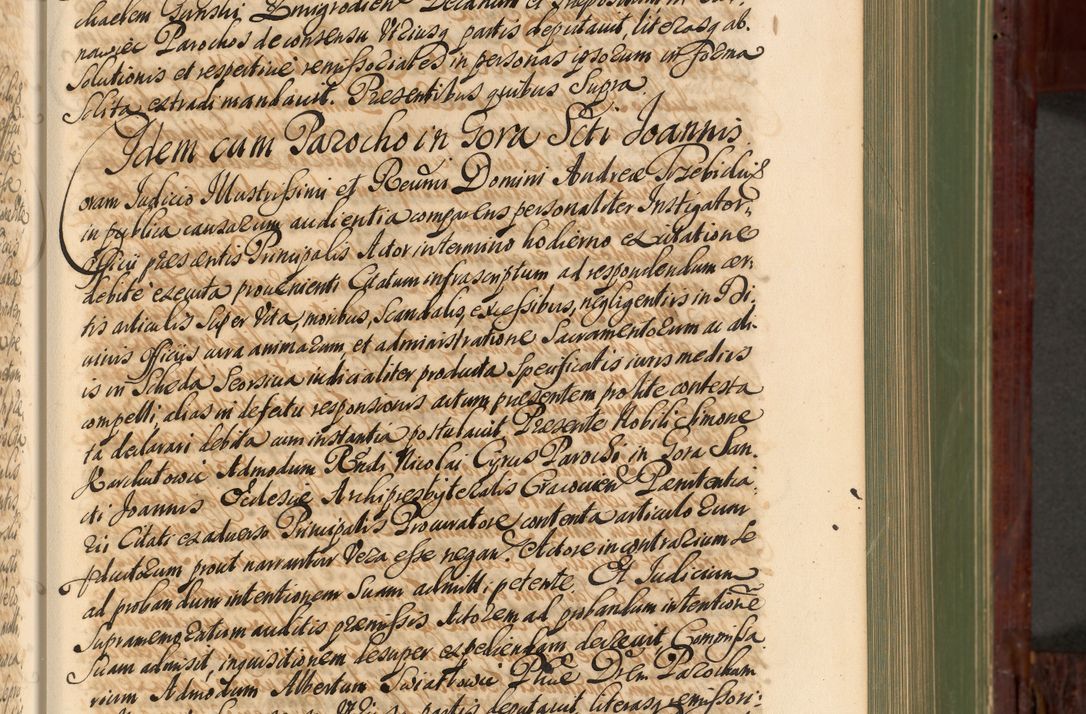 chaelem Gunski Zmigrodien Decanum et Praepositum in Bar,
Parochos de consensu Utriusq partis deputauit, literasq ab,
solutionis et respective remissoriales in personas ipsorum in forma
Solita extradi mandauit. Presentibus quibus Supra
Idem cum Parocho in Gora Scti Joannis
Coram Judicio Illustrissimi et Reuermi Domini Andreae Trzebicki &
in publica causarum audientia comparens personaliter Instigator
Officii praesentis Principalis Actor in termino hodierno ex Citatione
debite executa proueniente Citatum infrascriptum ad respondendum cer,
tis articulis super Vita, moribus, Scandalis, excessibus, negligentiis in Di,
uinis Officiis cura animarum, et administratione Sacramentorum ac ali,
is in Scheda Seorsiua iudicialiter producta Specificatis iuris mediis
compelli, alias in defectu responsionis actum praesentem pro lite contesta
ta declarari debita cum instantia postulauit. Presente Nobili Simone
Admodum Rndi Nicolai Cyrus Parochi in Gora San,
cti Joannis Ecclesiae Archipresbyteralis Cracouien Paenitentia,
rii Citati ex aduerso Principalis Procuratore contenta articulorum
productorum prout narrantur Vera esse negan. Actore in contrarium Se
ad probandum intentionem Suam admitti petente. Et Judicium
Supramemoratum auditis praemissis Actorem ad probandum intentionē
Suam admisit, inquisitionem desuper expediendam decreuit, Commissa
rium Admodum Albertum Swiatkowic Phiae Drem Parochum
partis deputauit, literasq remissori: